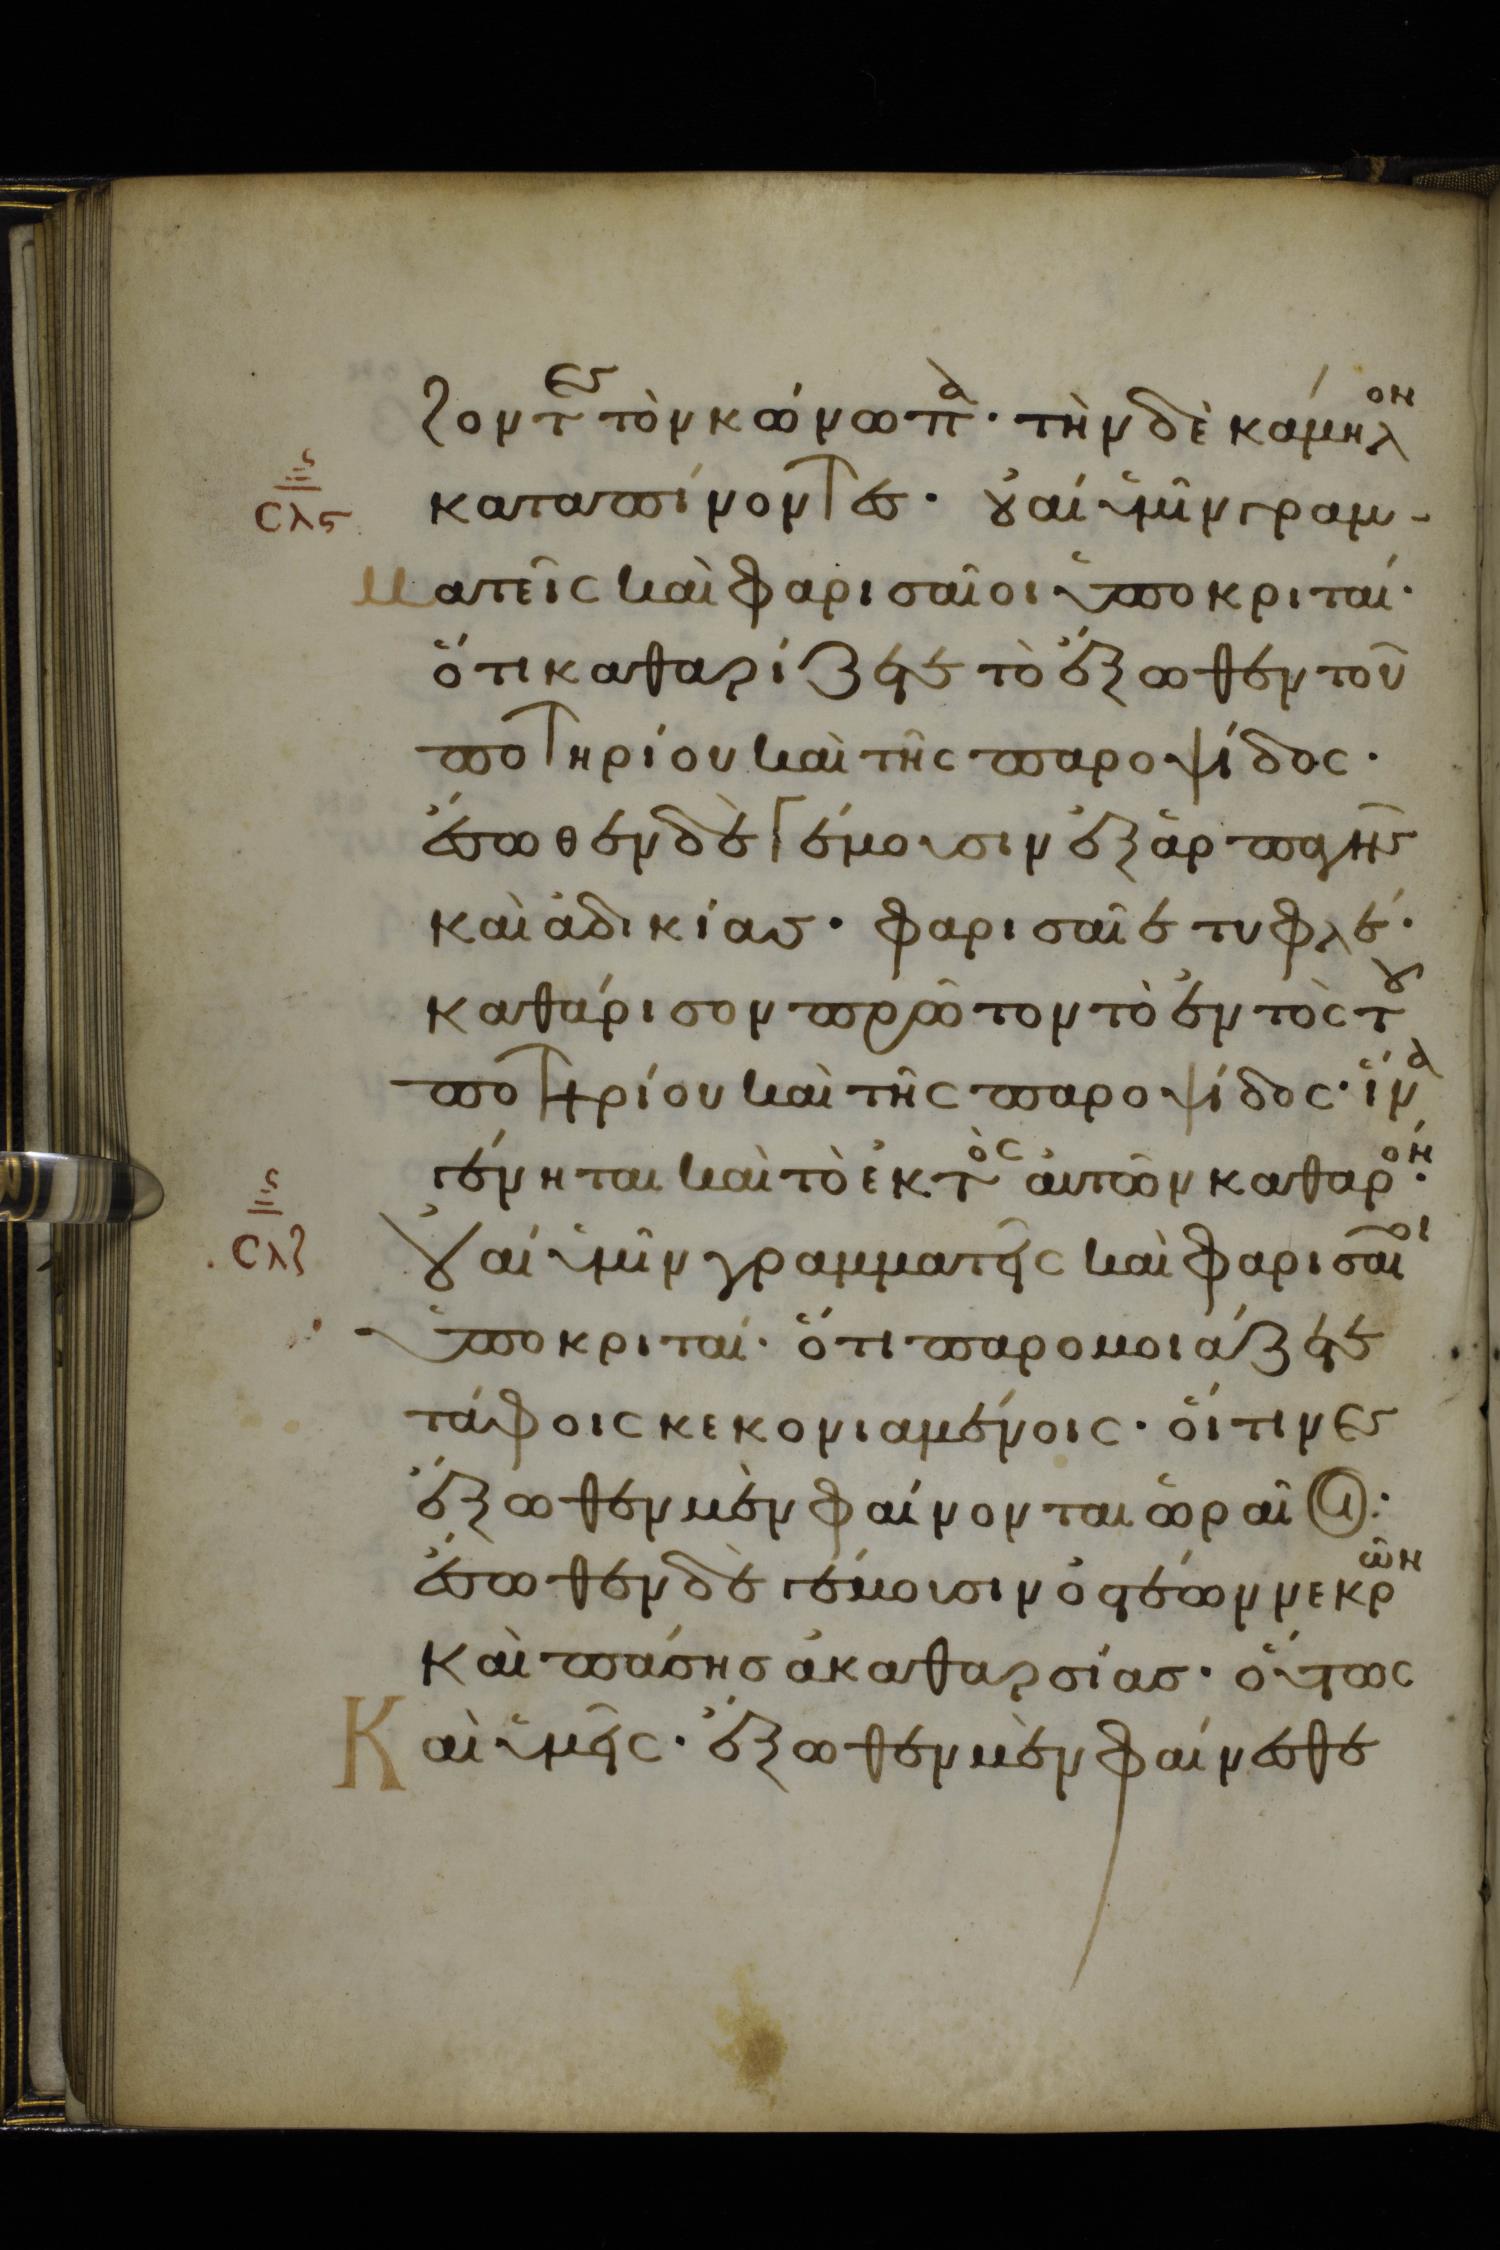 ζοντες τὸν κώνωπα· τὴν δὲ κάμηλον
καταπίνοντες· οὐαί ὑμῖν γραμ-
ϛ
σλϛ
ματεῖς καὶ φαρισαῖοι ὑποκριταί·
ὅτι καθαρίζετε τὸ ἔξωθεν τοῦ
ποτηρίου καὶ τῆς παροψίδος·
ἔσωθεν δὲ γέμουσιν ἐξ ἁρπαγῆς
καὶ ἀδικίας· φαρισαῖε τυφλέ·
καθάρισον πρῶτον τὸ ἐντὸς τοῦ
ποτηρίου καὶ τῆς παροψίδος· ἵνα
γένηται καὶ τὸ ἐκτὸς αὐτῶν καθαρόν·
ϛ
σλζ
Οὐαί ὑμῖν γραμματεῖς καὶ φαρισαῖοι
ὑποκριταί· ὅτι παρομοιάζετε
τάφοις κεκονιαμένοις· οἵτινες
ἔξωθεν μὲν φαίνονται ὡραῖοι:
ἔσωθεν δὲ γέμουσιν ὀστέων νεκρῶν
καὶ πάσησ ἀκαθαρσίασ· οὕτως
Καὶ ὑμεῖς· ἔξωθεν μὲν φαίνεσθε